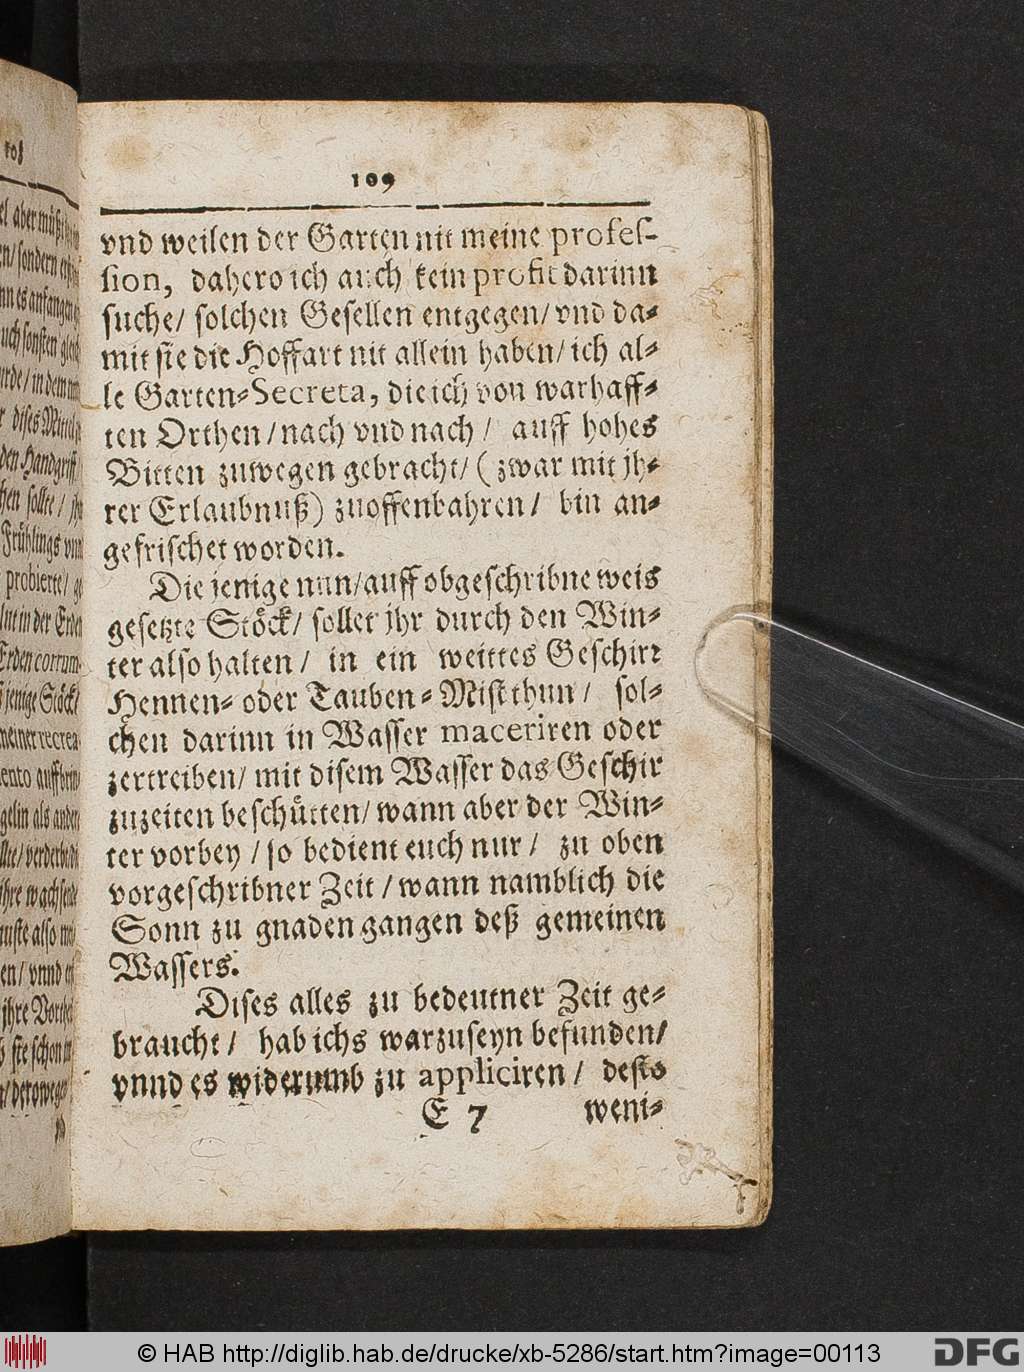 109
vnd weilen der Garten nit meine profes-
sion, dahero ich auch kein profit darinn
suche/ solchen Gesellen entgegen/ vnd da-
mit sie die Hoffart nit allein haben/ ich al-
le Garten-Secreta, die ich von warhaff-
ten Orthen/ nach vnd nach/ auff hohes
Bitten zuwegen gebracht/ (zwar mit jh-
rer Erlaubnuß) zuoffenbahren/ bin an-
gefrischet worden.
Die jenige nun/ auff obgeschribne weis
gesetzte Stöck/ sollet jhr durch den Win-
ter also halten/ in ein weittes Geschirr
Hennen- oder Tauben-Mist thun/ sol-
chen darinn in Wasser maceriren oder
zertreiben/ mit disem Wasser das Geschir
zuzeiten beschütten/ wann aber der Win-
ter vorbey/ so bedient euch nur/ zu oben
vorgeschribner Zeit/ wann namblich die
Sonn zu gnaden gangen deß gemeinen
Wassers.
Dises alles zu bedeutner Zeit ge-
braucht/ hab ichs warzuseyn befunden/
vnnd es widerumb zu appliciren/ desto
E 7 weni-
© HAB http://diglib.hab.de/drucke/xb-5286/start.htm?image=00113
DFG